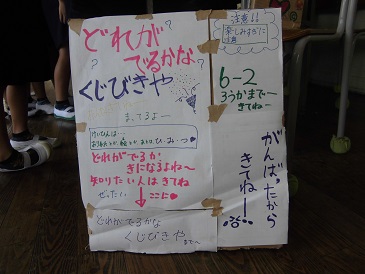 どれが
でるかな
くじびきや
まってるよ〜
どれがでるか
きになるよね〜
知りたい人はきてね
ぜったい
ここに
どれがでるかな
くじびきや
まで〜
注意!!
楽しみすぎに
注意
6-2
ろうかまで〜
きてね〜
がんばったから
きてね〜!!